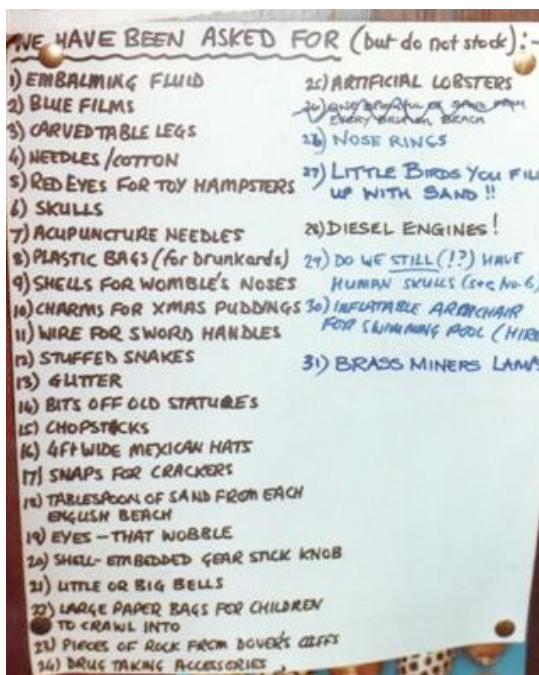 WE HAVE BEEN ASKED FOR (but do not stock):-
1) EMBALMING FLUID
2) BLUE FILMS
3) CARVED TABLE LEGS
4) NEEDLES/COTTON
5) RED EYES FOR TOY HAMPSTERS
6) SKULLS
7) ACUPUNCTURE NEEDLES
8) PLASTIC BAGS (for drunkards)
9) SHELLS FOR WOMBLE'S NOSES
10) CHARMS FOR XMAS PUDDINGS
11) WIRE FOR SWORD HANDLES
12) STUFFED SNAKES
13) GLITTER
14) BITS OFF OLD STATUES
15) CHOPSTICKS
16) 4FT WIDE MEXICAN HATS
17) SNAPS FOR CRACKERS
18) TABLESPOON OF SAND FROM EACH
ENGLISH BEACH
19) EYES - THAT WOBBLE
20) SHELL-EMBEDDED GEAR STICK KNOB
21) LITTLE OR BIG BELLS
22) LARGE PAPER BAGS FOR CHILDREN
TO CRAWL INTO
23) PIECES OF ROCK FROM DOVER'S CLIFFS
24) DRUG TAKING ACCESSORIES
25) ARTIFICIAL LOBSTERS
OF SAND FROM
EVERY BEACH
26) NOSE RINGS
27) LITTLE BIRDS YOU FILL
UP WITH SAND!!
28) DIESEL ENGINES!
29) DO WE STILL(!?) HAVE
HUMAN SKULLS (see No. 6)
30) INFLATABLE ARMCHAIR
FOR SWIMMING POOL (HIRE
31) BRASS MINERS LAMPS